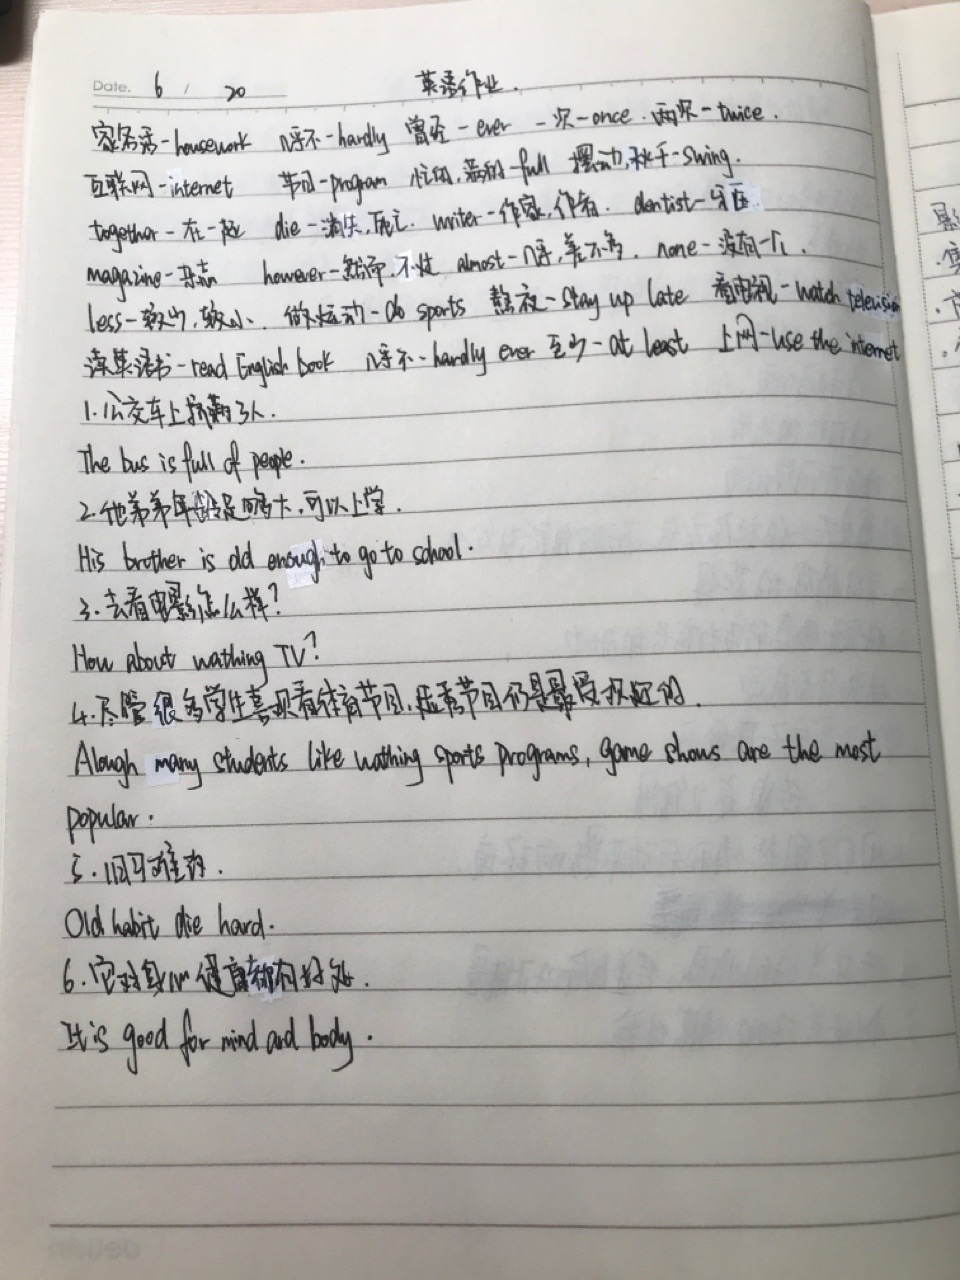 Date. 6 / 20 英语作业.
家务活-housework 几乎不-hardly 曾经-ever 一次-once. 两次-twice.
互联网-internet 节目-program 忙的,满的-full 摆动,秋千-swing.
together-在一起 die-消失,死亡. writer-作家,作者. dentist-牙医.
magazine-杂志 however-然而,不过 almost-几乎,差不多. none-没有一个.
less-较少,较小. 做运动-do sports 熬夜-stay up late 看电视-watch television
读英语书-read English book 几乎不-hardly ever 至少-at least 上网-use the internet
1.公交车上挤满了人.
The bus is full of people.
2.他弟弟年龄足够大,可以上学.
His brother is old enough to go to school.
3.去看电影怎么样?
How about wathing TV?
4.尽管很多学生喜欢看体育节目,游戏节目仍是最受欢迎的.
Alough many students like wathing sports programs, game shows are the most
popular.
5.旧习难改.
Old habit die hard.
6.它对身心健康都有好处.
It is good for mind and body.
deli